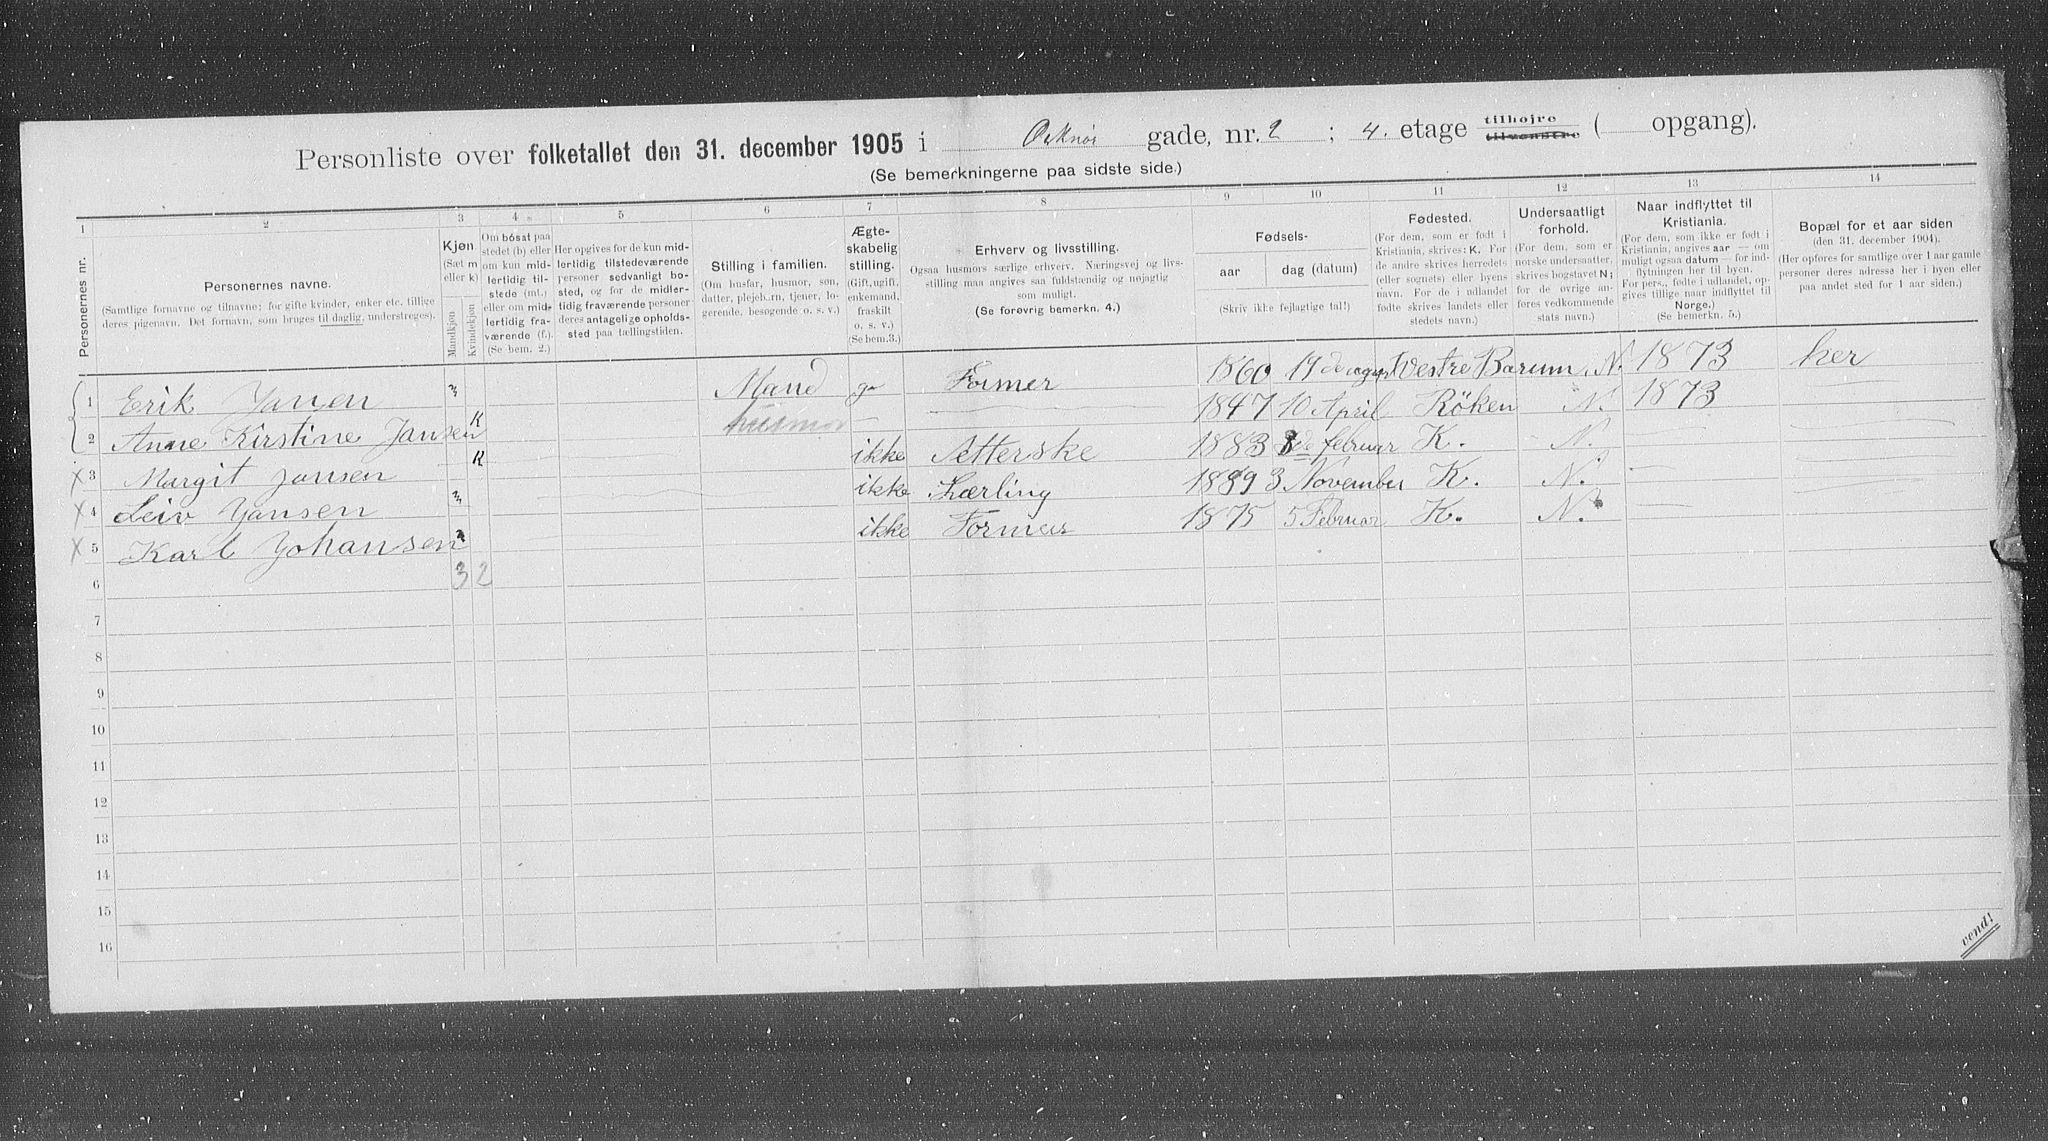 Personliste over folketallet den 31. december 1905 i Orknöi gade, nr. 2 ; 4. etage tilhøjre tilvenstre ( opgang).
(Se bemerkningerne paa sidste side.)
1 2 3 4 5 6 7 8 9 10 11 12 13 14
Personernes nr.
Personernes navne.
(Samtlige fornavne og tilnavne; for gifte kvinder, enker etc. tillige
deres pigenavn. Det fornavn, som bruges til daglig, understreges).
Kjøn
(Sæt m
eller k)
Mandkjøn
Kvindekjøn
Om bosat paa
stedet (b) eller
om kun mid-
lertidig til-
stede (mt.)
eller om mid-
lertidig fra-
værende (f.).
(Se bem. 2.)
Her opgives for de kun mid-
lertidig tilstedeværende
personer sedvanligt bo-
sted, og for de midler-
tidig fraværende personer
deres antagelige opholds-
sted paa tællingstiden.
Stilling i familien.
(Om husfar, husmor, søn,
datter, plejebarn, tjener, lo-
gerende, besøgende o. s. v.)
Ægte-
skabelig
stilling.
(Gift, ugift,
enkemand,
fraskilt
o. s. v.)
(Se bem.3.)
Erhverv og livsstilling.
Ogsaa husmors særlige erhverv. Næringsvej og livs-
stilling maa angives saa fuldstændig og nøjagtig
som muligt.
(Se forøvrig bemerkn. 4.)
Fødsels-
aar dag (datum)
(Skriv ikke fejlagtige tal!)
Fødested.
(For dem, som er født i
Kristiania, skrives: K. For
de andre skrives herredets
(eller sognets) eller byens
navn. For de i udlandet
fødte skrives landets eller
stedets navn.)
Undersaatligt
forhold.
(For dem, som er
norske undersaatter,
skrives bogstavet N;
for de øvrige an-
føres vedkommende
stats navn.)
Naar indflyttet til
Kristiania.
(For dem, som ikke er født i
Kristiania, angives aar — om
muligt ogsaa datum — for ind-
flytningen her til byen.
For pers., fødte i udlandet, op-
gives tillige naar indflyttet til
Norge.)
(Se bemerkn. 5.)
Bopæl for et aar siden
(den 31. december 1904).
(Her opføres for samtlige over 1 aar gamle
personer deres adresse her i byen eller
paa andet sted for 1 aar siden.)
1 Erik Jansen m Mand g Former 1860 19de august Vestre Barum N. 1873 her
2 Anne Kirstine Jansen K husmor — 1847 10 April Röken N. 1873
x 3 Margit Jansen K ikke Setterske 1883 8de februar K. N.
x 4 Leiv Jansen m ikke Lærling 1889 3 November K. N.
x 5 Karl Johansen m ikke Former 1875 5 Februar K. N.
6 3 2
7
8
9
10
11
12
13
14
15
16
vend!